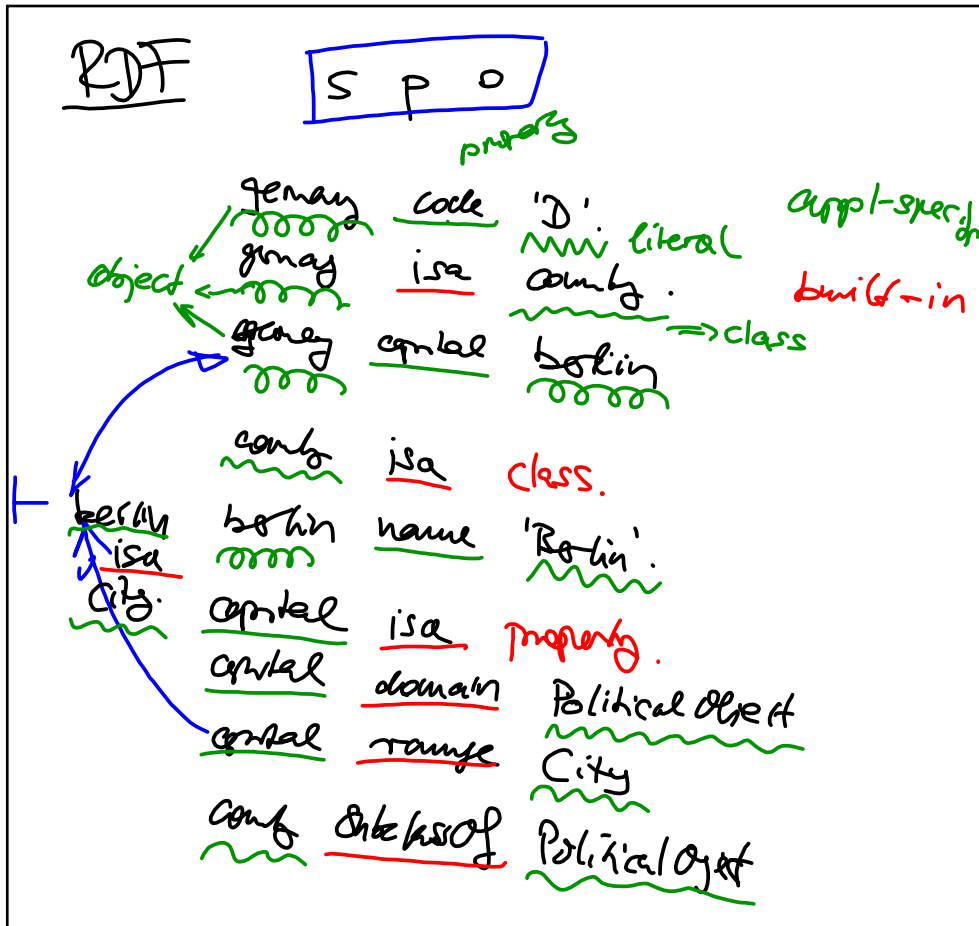 RDF
s p o
property
germany code 'D'.
literal
appl-specific
object
germany isa country.
=> class
built-in
germany capital berlin
country isa class.
berlin isa City.
berlin name 'Berlin'.
capital isa property.
capital domain Political Object
capital range City
country SubclassOf Political Object